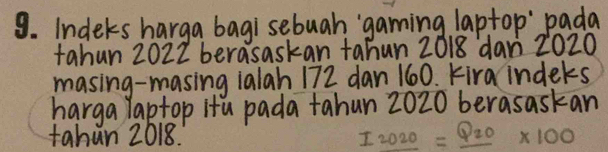 9. Indeks harga bagi sebuah 'gaming laptop' pada
tahun 2022 berasaskan tahun 2018 dan 2020
masing-masing ialah 172 dan 160. Kira indeks
harga laptop itu pada tahun 2020 berasaskan
tahun 2018.
I 2020 = Q20 × 100